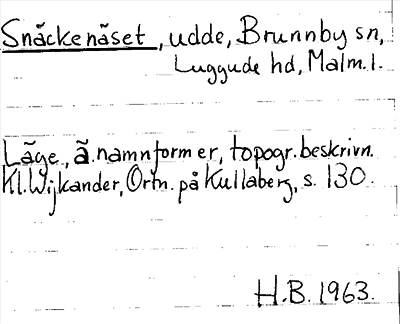 Snäckenäset, udde, Brunnby sn,
Luggude hd, Malm.l.
Läge, ä.namnformer, topogr.beskrivn.
Kl.Wijkander, Ortn. på Kullaberg, s. 130.
H.B. 1963.